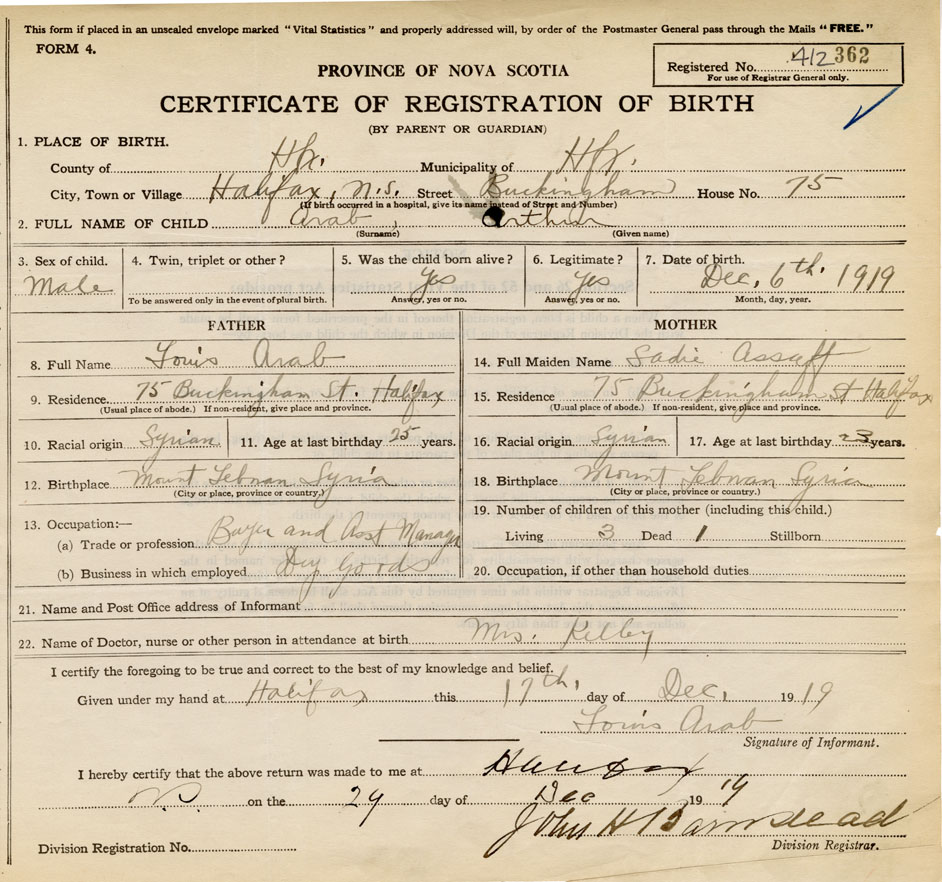 This form if placed in an unsealed envelope marked "Vital Statistics" and properly addressed will, by order of the Postmaster General pass through the Mails "FREE."
FORM 4.
Registered No. 412 362
For use of Registrar General only.
PROVINCE OF NOVA SCOTIA
CERTIFICATE OF REGISTRATION OF BIRTH
(BY PARENT OR GUARDIAN)
1. PLACE OF BIRTH.
County of Hfx. Municipality of Hfx.
City, Town or Village Halifax, N.S. Street Buckingham House No. 75
(If birth occurred in a hospital, give its name instead of Street and Number)
2. FULL NAME OF CHILD Arab, Arthur
(Surname) (Given name)
3. Sex of child. 4. Twin, triplet or other? 5. Was the child born alive? 6. Legitimate? 7. Date of birth.
Male Yes Yes Dec, 6th. 1919
To be answered only in the event of plural birth. Answer, yes or no. Answer, yes or no. Month, day, year.
FATHER MOTHER
8. Full Name Louis Arab 14. Full Maiden Name Sadie Assaff
9. Residence. 75 Buckingham St. Halifax 15. Residence 75 Buckingham St Halifax
(Usual place of abode.) If non-resident, give place and province. (Usual place of abode.) If non-resident, give place and province.
10. Racial origin Syrian 11. Age at last birthday 25 years. 16. Racial origin Syrian 17. Age at last birthday 23 years.
12. Birthplace Mount Lebnan Syria 18. Birthplace Mount Lebnan Syria
(City or place, province or country.) (City or place, province or country.)
13. Occupation:— 19. Number of children of this mother (including this child.)
(a) Trade or profession Buyer and Asst Manager Living 3 Dead 1 Stillborn
(b) Business in which employed Dry Goods 20. Occupation, if other than household duties
21. Name and Post Office address of Informant
22. Name of Doctor, nurse or other person in attendance at birth Mrs. Kelley
I certify the foregoing to be true and correct to the best of my knowledge and belief.
Given under my hand at Halifax this 17th, day of Dec, 1919
Louis Arab
Signature of Informant.
I hereby certify that the above return was made to me at Halifax
on the 29 day of Dec 1919
John H Barnstead
Division Registration No. Division Registrar.